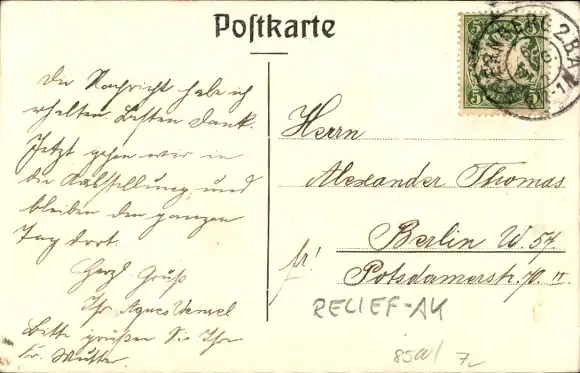 Postkarte
Die Nachricht habe ich
erhalten. Besten Dank.
Jetzt gehen wir in
die Ausstellung und
bleiben den ganzen
Tag dort.
Herzl. Grüß
Ihr Agnes Wenzel
Bitte grüßen Sie Ihr
Fr. Mutter.
5 5
NÜRNBERG 2.B.P.
Herrn
Alexander Thomas
Berlin W. 57.
fr! Potsdamerstr. 70. II
RELIEF-AK
850/ 7,-